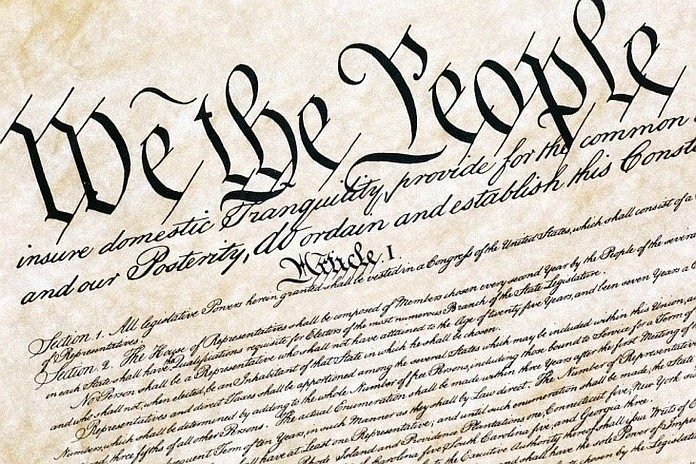 We the People
insure domestic Tranquility, provide for the common
and our Posterity, do ordain and establish this Const
Article. I.
Section. 1. All legislative Powers herein granted shall be vested in a Congress of the United States, which shall consist of a
of Representatives.
Section. 2. The House of Representatives shall be composed of Members chosen every second Year by the People of the seve
in each State shall have the Qualifications requisite for Electors of the most numerous Branch of the State Legislature.
No Person shall be a Representative who shall not have attained to the Age of twenty five Years, and been seven Years a
and who shall not, when elected, be an Inhabitant of that State in which he shall be chosen.
Representatives and direct Taxes shall be apportioned among the several States which may be included within this Union,
Numbers, which shall be determined by adding to the whole Number of free Persons, including those bound to Service for a Term of
and three fifths of all other Persons. The actual Enumeration shall be made within three Years after the first Meeting of
subsequent Term of ten Years, in such Manner as they shall by Law direct. The Number of Representative
shall have at Least one Representative; and until such enumeration shall be made, the State
Rhode Island and Providence Plantations one, Connecticut five, New York
Carolina five, South Carolina five, and Georgia three.
the Executive Authority thereof shall issue Writs of
and shall have the sole Power of Imp